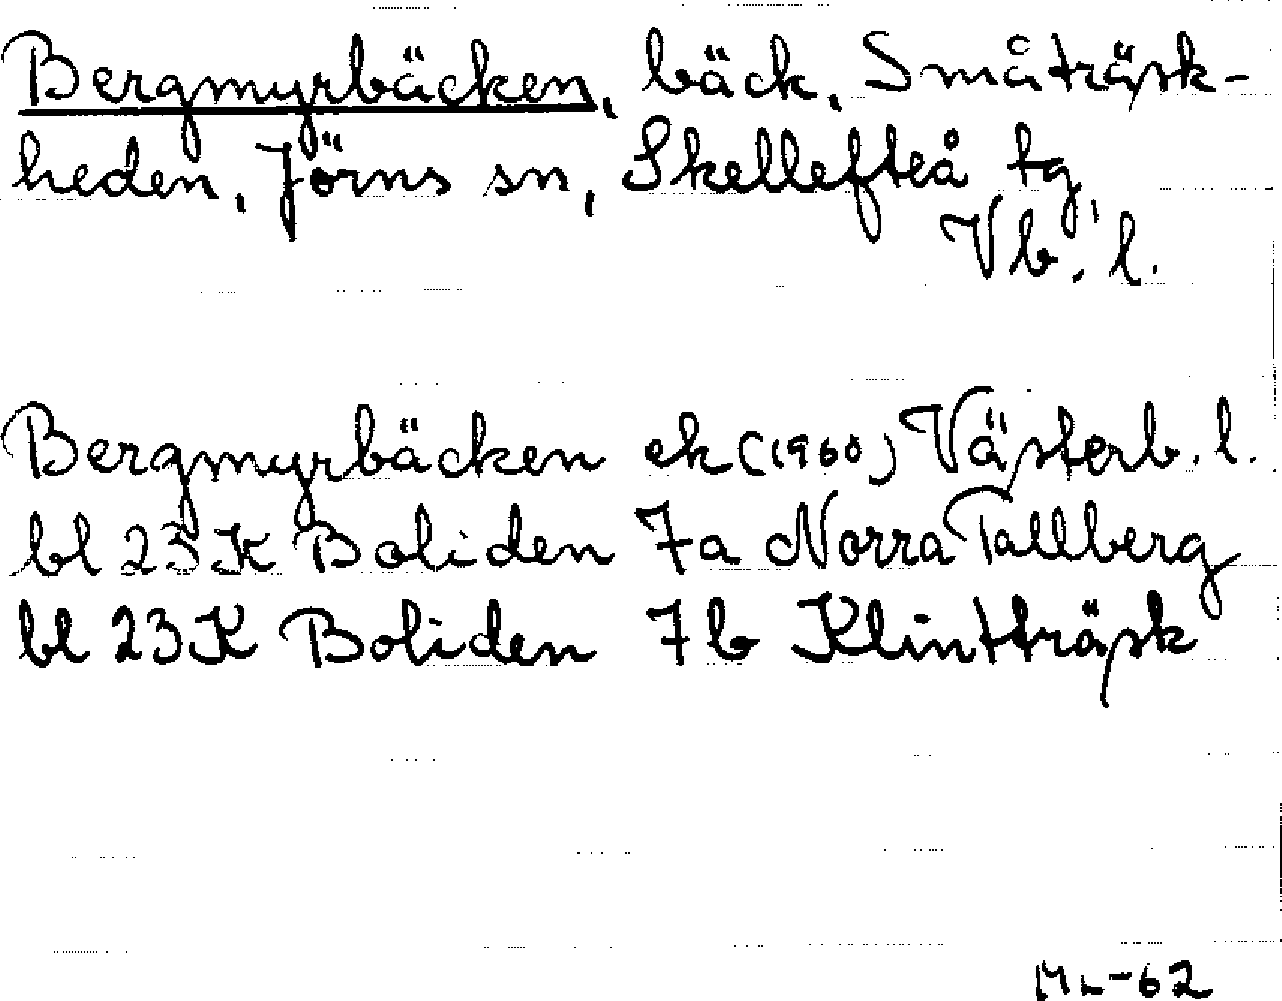 Bergmyrbäcken, bäck, Småträsk-
heden, Jörns sn, Skellefteå tg,
Vb. l.
Bergmyrbäcken ek (1960) Västerb. l.
bl 23K Boliden 7a Norra Tallberg
bl 23K Boliden 7b Klintträsk
ML-62